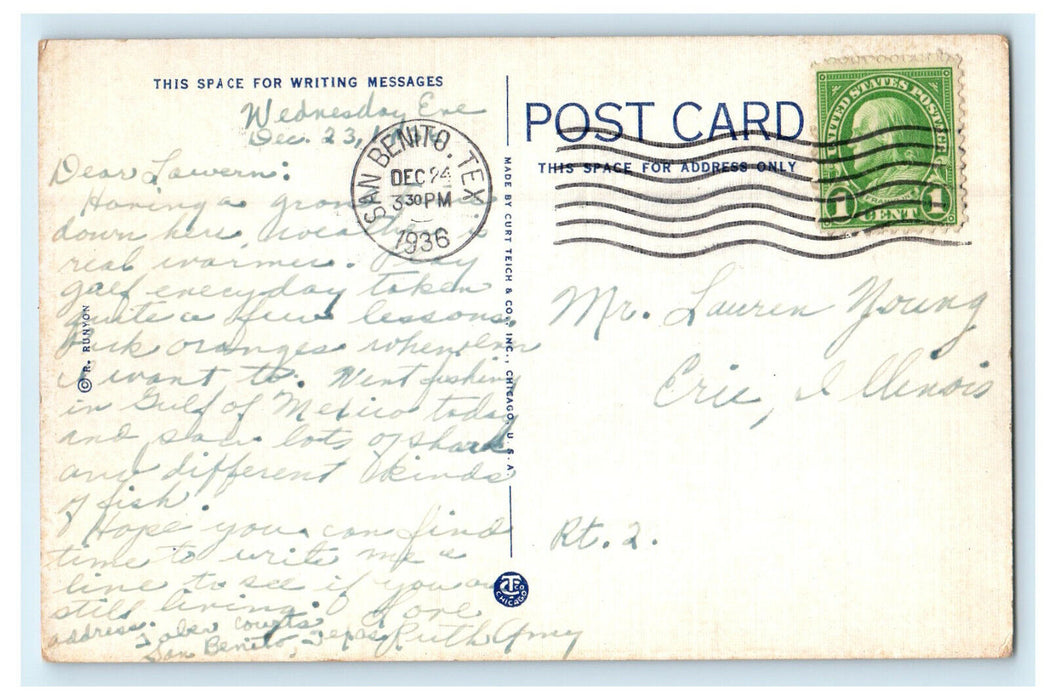 THIS SPACE FOR WRITING MESSAGES
Wednesday Eve
Dec. 23,
Dear Lawern:
Having a grand
down here, weather is
real warmer. Play
golf everyday taken
quite a few lessons.
Pick oranges whenever
I want to. Went fishing
in Gulf of Mexico today
and saw lots of shark
and different kinds
of fish.
Hope you can find
time to write me a
line to see if you are
still living.
Love
Ruth Amy
address.
Taber Courts
San Benito, Texas
© R. RUNYON
SAN BENITO, TEX
DEC 24
3 30 PM
1936
MADE BY CURT TEICH & CO., INC., CHICAGO, U.S.A.
CT CO
CHICAGO
POST CARD
THIS SPACE FOR ADDRESS ONLY
UNITED STATES POSTAGE
FRANKLIN
1 CENT 1
Mr. Lauren Young
Erie, Illinois
Rt. 2.